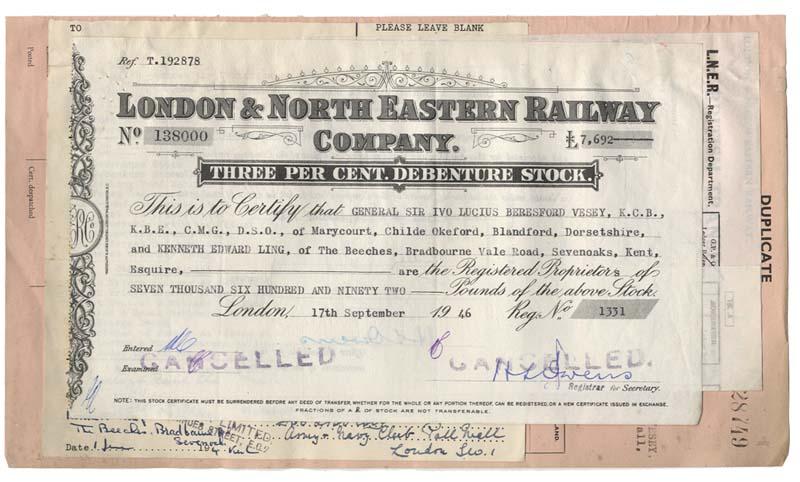 TO
PLEASE LEAVE BLANK
Posted
Cert. despatched
Ref. T.192878
LONDON & NORTH EASTERN RAILWAY
COMPANY.
No 138000
£7,692
THREE PER CENT. DEBENTURE STOCK.
This is to Certify that GENERAL SIR IVO LUCIUS BERESFORD VESEY, K.C.B.,
K.B.E., C.M.G., D.S.O., of Marycourt, Childe Okeford, Blandford, Dorsetshire,
and KENNETH EDWARD LING, of The Beeches, Bradbourne Vale Road, Sevenoaks, Kent,
Esquire, are the Registered Proprietors of
SEVEN THOUSAND SIX HUNDRED AND NINETY TWO Pounds of the above Stock.
London, 17th September 1946 Reg. No 1331
Entered
Examined
CANCELLED
CANCELLED.
Registrar for Secretary.
NOTE: THIS STOCK CERTIFICATE MUST BE SURRENDERED BEFORE ANY DEED OF TRANSFER, WHETHER FOR THE WHOLE OR ANY PORTION THEREOF, CAN BE REGISTERED, OR A NEW CERTIFICATE ISSUED IN EXCHANGE.
FRACTIONS OF A £ OF STOCK ARE NOT TRANSFERABLE.
The Beeches, Bradbourne
Sevenoaks
Kent
Army & Navy Club Pall Mall
London SW.1
LIMITED
Date
194
L.N.E.R.—Registration Department.
DUPLICATE
28749